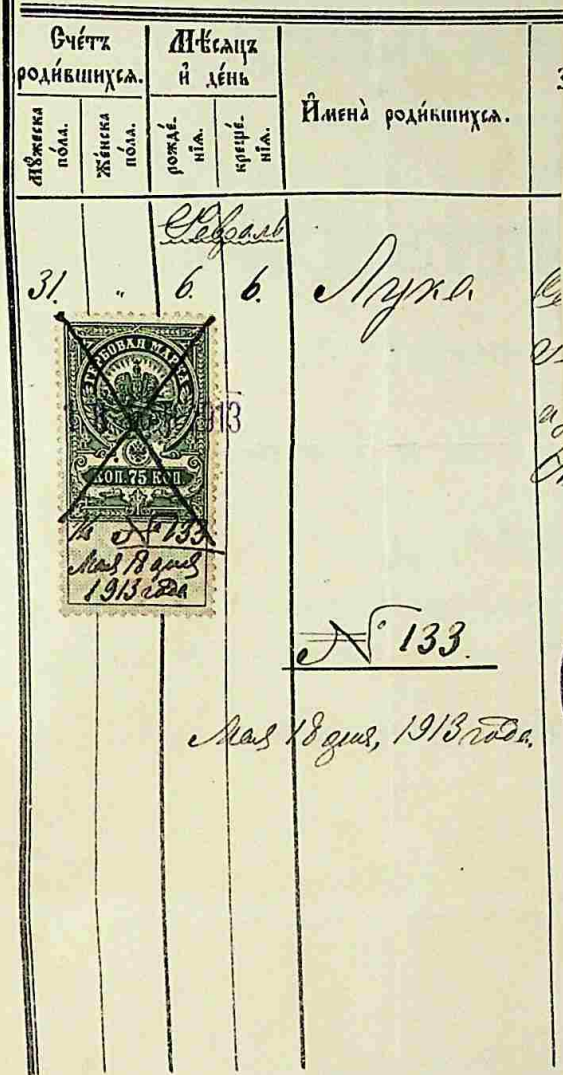 Сче́тъ роди́вшихся.
Мѣ́сяцъ и҆ де́нь
И҆мена̀ роди́вшихся.
Мꙋ́жеска по́ла.
Же́нска по́ла.
рожде́нїѧ.
креще́нїѧ.
Февраль
31. " 6. 6. Лука
ГЕРБОВАЯ МАРКА
1913
КОП. 75 КОП.
№ 133
Мая 18 дня
1913 года
№ 133.
Мая 18 дня, 1913 года.